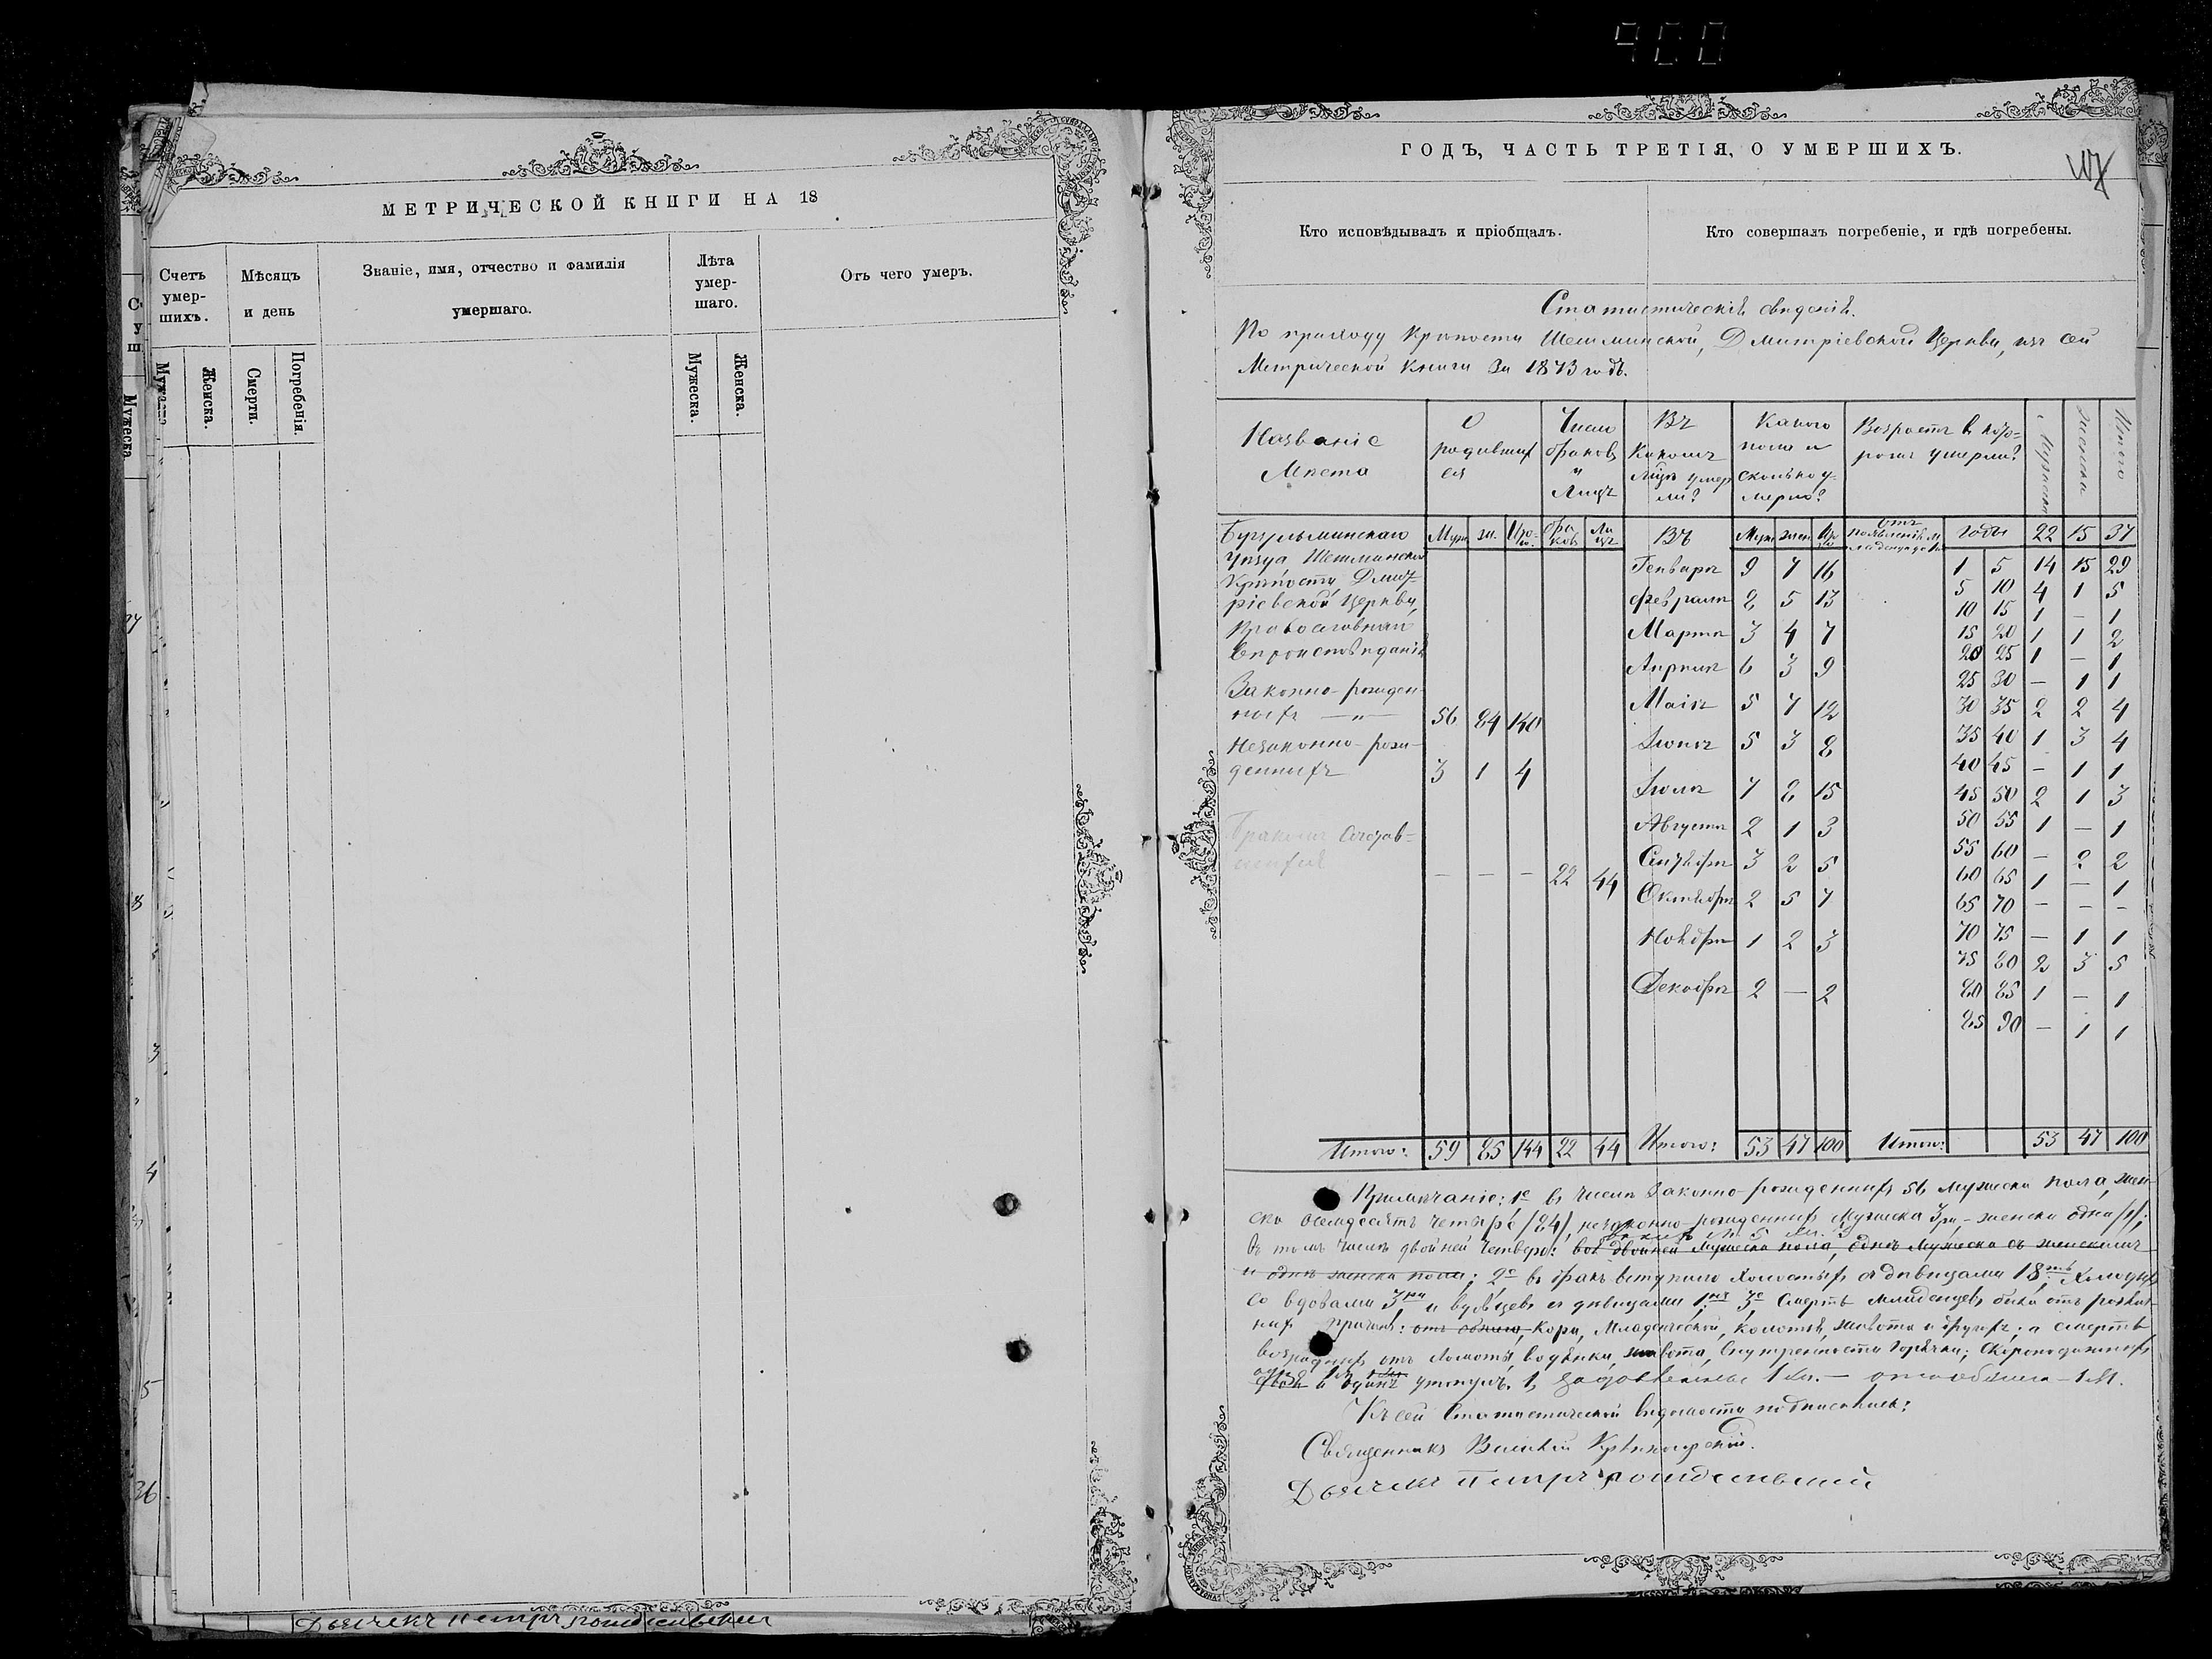 900
МЕТРИЧЕСКОЙ КНИГИ НА 18
Счетъ умер-шихъ.
Мѣсяцъ и день
Званіе, имя, отчество и фамилія умершаго.
Лѣта умер-шаго.
Отъ чего умеръ.
Мужеска
Женска.
Смерти.
Погребенія.
Мужеска.
Женска.
ГОДЪ, ЧАСТЬ ТРЕТІЯ, О УМЕРШИХЪ.
Кто исповѣдывалъ и пріобщалъ.
Кто совершалъ погребеніе, и гдѣ погребены.
Статистическія свѣденія.
По приходу Крѣпости Шешминской, Дмитріевской Церкви, изъ сей
Метрической Книги за 1873 годъ.
Названіе Мѣста
О родившихся
Число браковъ и лицъ
Въ какомъ умерли?
Какого пола и сколько умерло?
Возрастъ в которомъ умерли?
Мужеска
Женска
Итого
Бугульминскаго
Уѣзда Шешминской
Крѣпости Дмит-
ріевской Церкви,
Православнаго
вѣроисповѣданія
Муж. жен. браковъ лицъ Въ Муж жен
годы 22 15 37
Генварѣ 9 7 16
Февралѣ 8 5 13
Мартѣ 3 4 7
Апрѣлѣ 6 3 9
Маіѣ 5 7 12
Іюнѣ 5 3 8
Іюлѣ 7 8 15
Августѣ 2 1 3
Сентябрѣ 3 2 5
Октябрѣ 2 5 7
Ноябрѣ 1 2 3
Декабрѣ 2 — 2
Законно-рожден-
ныхъ —"— 56 84 140
Незаконно-рож-
денныхъ 3 1 4
Бракомъ сочетав-
шихся — — — 22 44
1 5 14 15 29
5 10 4 1 5
10 15 1 — 1
15 20 1 1 2
20 25 1 — 1
25 30 — 1 1
30 35 2 2 4
35 40 1 3 4
40 45 — 1 1
45 50 2 1 3
50 55 1 — 1
55 60 — 2 2
60 65 1 — 1
65 70 — — —
70 75 — 1 1
75 80 2 3 5
80 85 1 — 1
85 90 — 1 1
Итого: 59 85 144 22 44 Итого: 53 47 100 Итого: 53 47 100
Примѣчаніе: 1е въ числѣ законно-рожденныхъ 56 мужеска пола, жен-
ска осемдесятъ четыре /84/, незаконно-рожденныхъ мужеска 3ри, женска одна /1/;
въ томъ числѣ двойней четверо: двойней мужеска пола, мужеска съ женскимъ
и однѣ женска пола; 2е въ бракъ вступило холостыхъ съ дѣвицами 18ть, холостыхъ
со вдовами 3ри и вдовцевъ съ дѣвицами 1нъ 3е Смерть младенцевъ была отъ
причинъ: Кори, Младенческой, колотья, живота и другихъ; а смерть
возрастныхъ отъ ломоты, водянки, живота, внутренности горячки; Скоропостижныхъ
утонулъ. 1,
Къ сей Статистической вѣдомости подписались:
Священникъ Василій
Дьячекъ Петръ
Дьячекъ Петръ